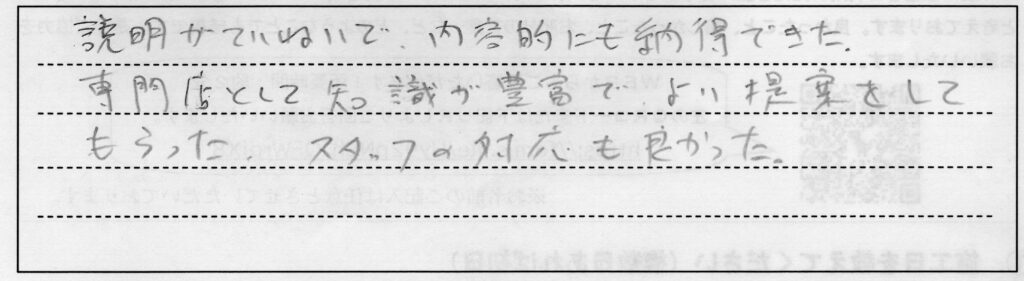 説明がていねいで、内容的にも納得できた。
専門店として知識が豊富で、よい提案をして
もらった。スタッフの対応も良かった。